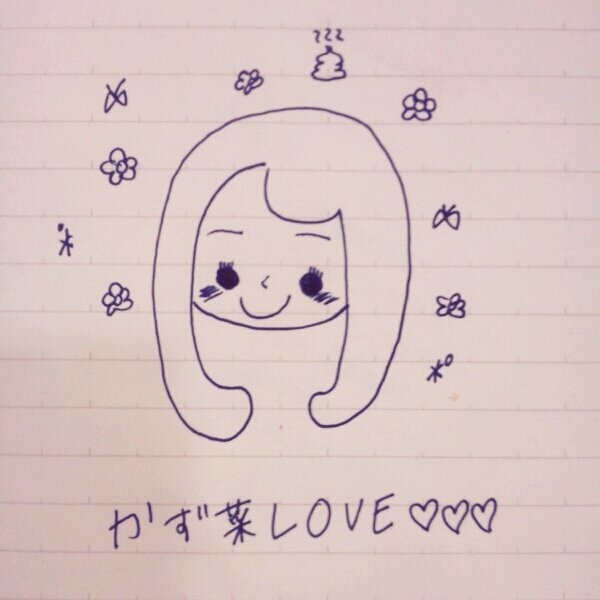 かず葉LOVE♡♡♡